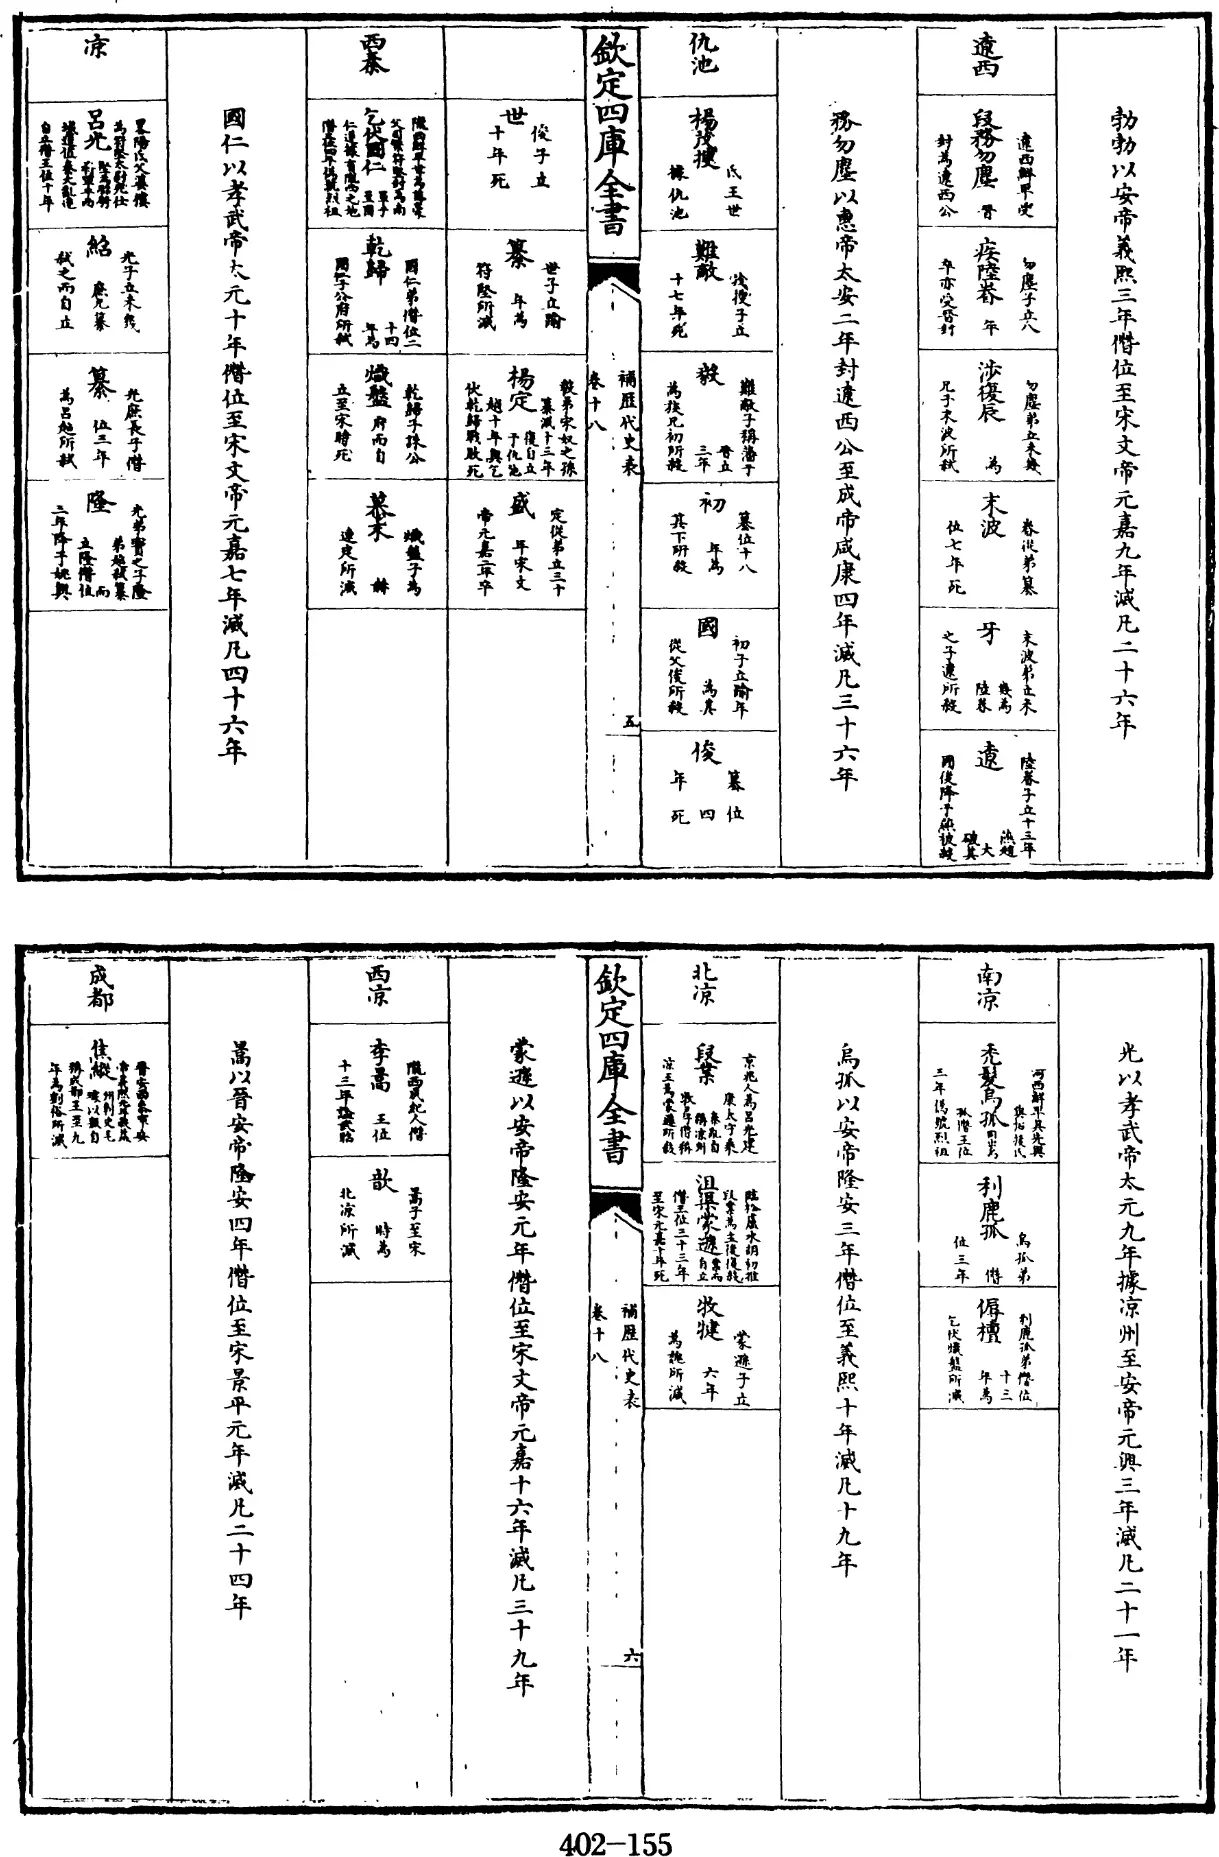 勃勃以安帝義熙三年僭位至宋文帝元嘉九年滅凡二十六年
遼西
段務勿塵
遼西鮮卑
晉
封為遼西公
疾陸眷
勿塵子立八
年
卒亦受晉封
涉復辰
勿塵弟立未幾
為
兄子末波所弒
末波
眷從弟簒
位七年死
牙
末波弟立未
幾為
陸眷
之子遼所殺
遼
陸眷子立十三年
務勿塵以惠帝太安二年封遼西公至成帝咸康四年滅凡三十六年
仇池
楊茂搜
氐王世
據仇池
難敵
茂搜子立
十七年死
毅
難敵子稱藩于
晉立
三年
為族兄初所殺
初
簒位十八
年為
其下所殺
國
初子立踰年
為其
從父俊所殺
俊
簒位
四
年死
欽定四庫全書
補歷代史表
卷十八
五
世
俊子立
十年死
纂
世子立踰
年為
符堅所滅
楊定
毅弟宋奴之孫
纂滅十三年
復自立
于仇池
越十年與乞
伏乾歸戰敗死
盛
定從弟立三十
年宋文
帝元嘉二年卒
西秦
乞伏國仁
乾歸
國仁弟僭位二
十四
年為
國仁子公府所弒
熾磐
乾歸子誅公
府而自
立至宋時死
慕末
熾磐子為
赫
連定所滅
國仁以孝武帝太元十年僭位至宋文帝元嘉七年滅凡四十六年
涼
呂光
自立僭王位十年
紹
光子立未幾
庶兄纂
弒之而自立
纂
光庶長子僭
位三年
為呂超所弒
隆
光弟寶之子隆
弟超弒纂
而
立隆僭位
三年降于姚興
光以孝武帝太元九年據涼州至安帝元興三年滅凡二十一年
南涼
禿髮烏孤
河西鮮卑其先與
孤僭王位
三年偽號烈祖
利鹿孤
烏孤弟
僭
位三年
傉檀
利鹿孤弟僭位
十三
年為
乞伏熾磐所滅
烏孤以安帝隆安三年僭位至義熙十年滅凡十九年
北涼
段業
京兆人為呂光建
康太守
涼王為蒙遜所殺
沮渠蒙遜
臨松盧水胡初推
段業為主後復殺
業而
自立
僭王位三十三年
至宋元嘉十年死
牧犍
蒙遜子立
六年
為魏所滅
欽定四庫全書
補歷代史表
卷十八
六
蒙遜以安帝隆安元年僭位至宋文帝元嘉十六年滅凡三十九年
西涼
李暠
隴西成紀人僭
王位
十三年諡武昭
歆
暠子至宋
時為
北涼所滅
暠以晉安帝隆安四年僭位至宋景平元年滅凡二十四年
成都
譙縱
稱成都王至九
年為劉裕所滅
402-155